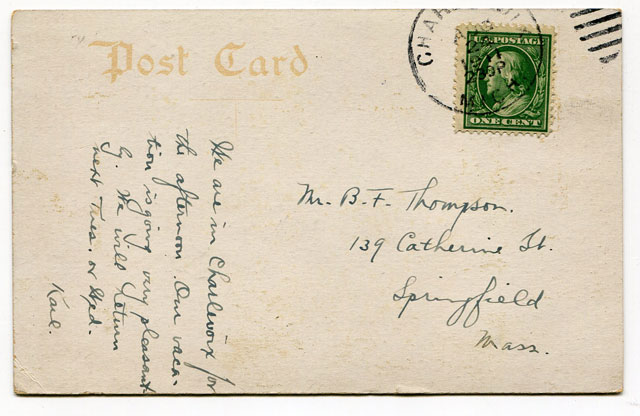 Post Card
CHAR
U.S. POSTAGE
ONE CENT
We are in Charlevoix for
the afternoon. Our vaca-
tion is going very pleasant
ly. We will return
next Tues. or Wed.
Karl.
Mr. B. F. Thompson.
139 Catherine St.
Springfield
Mass.